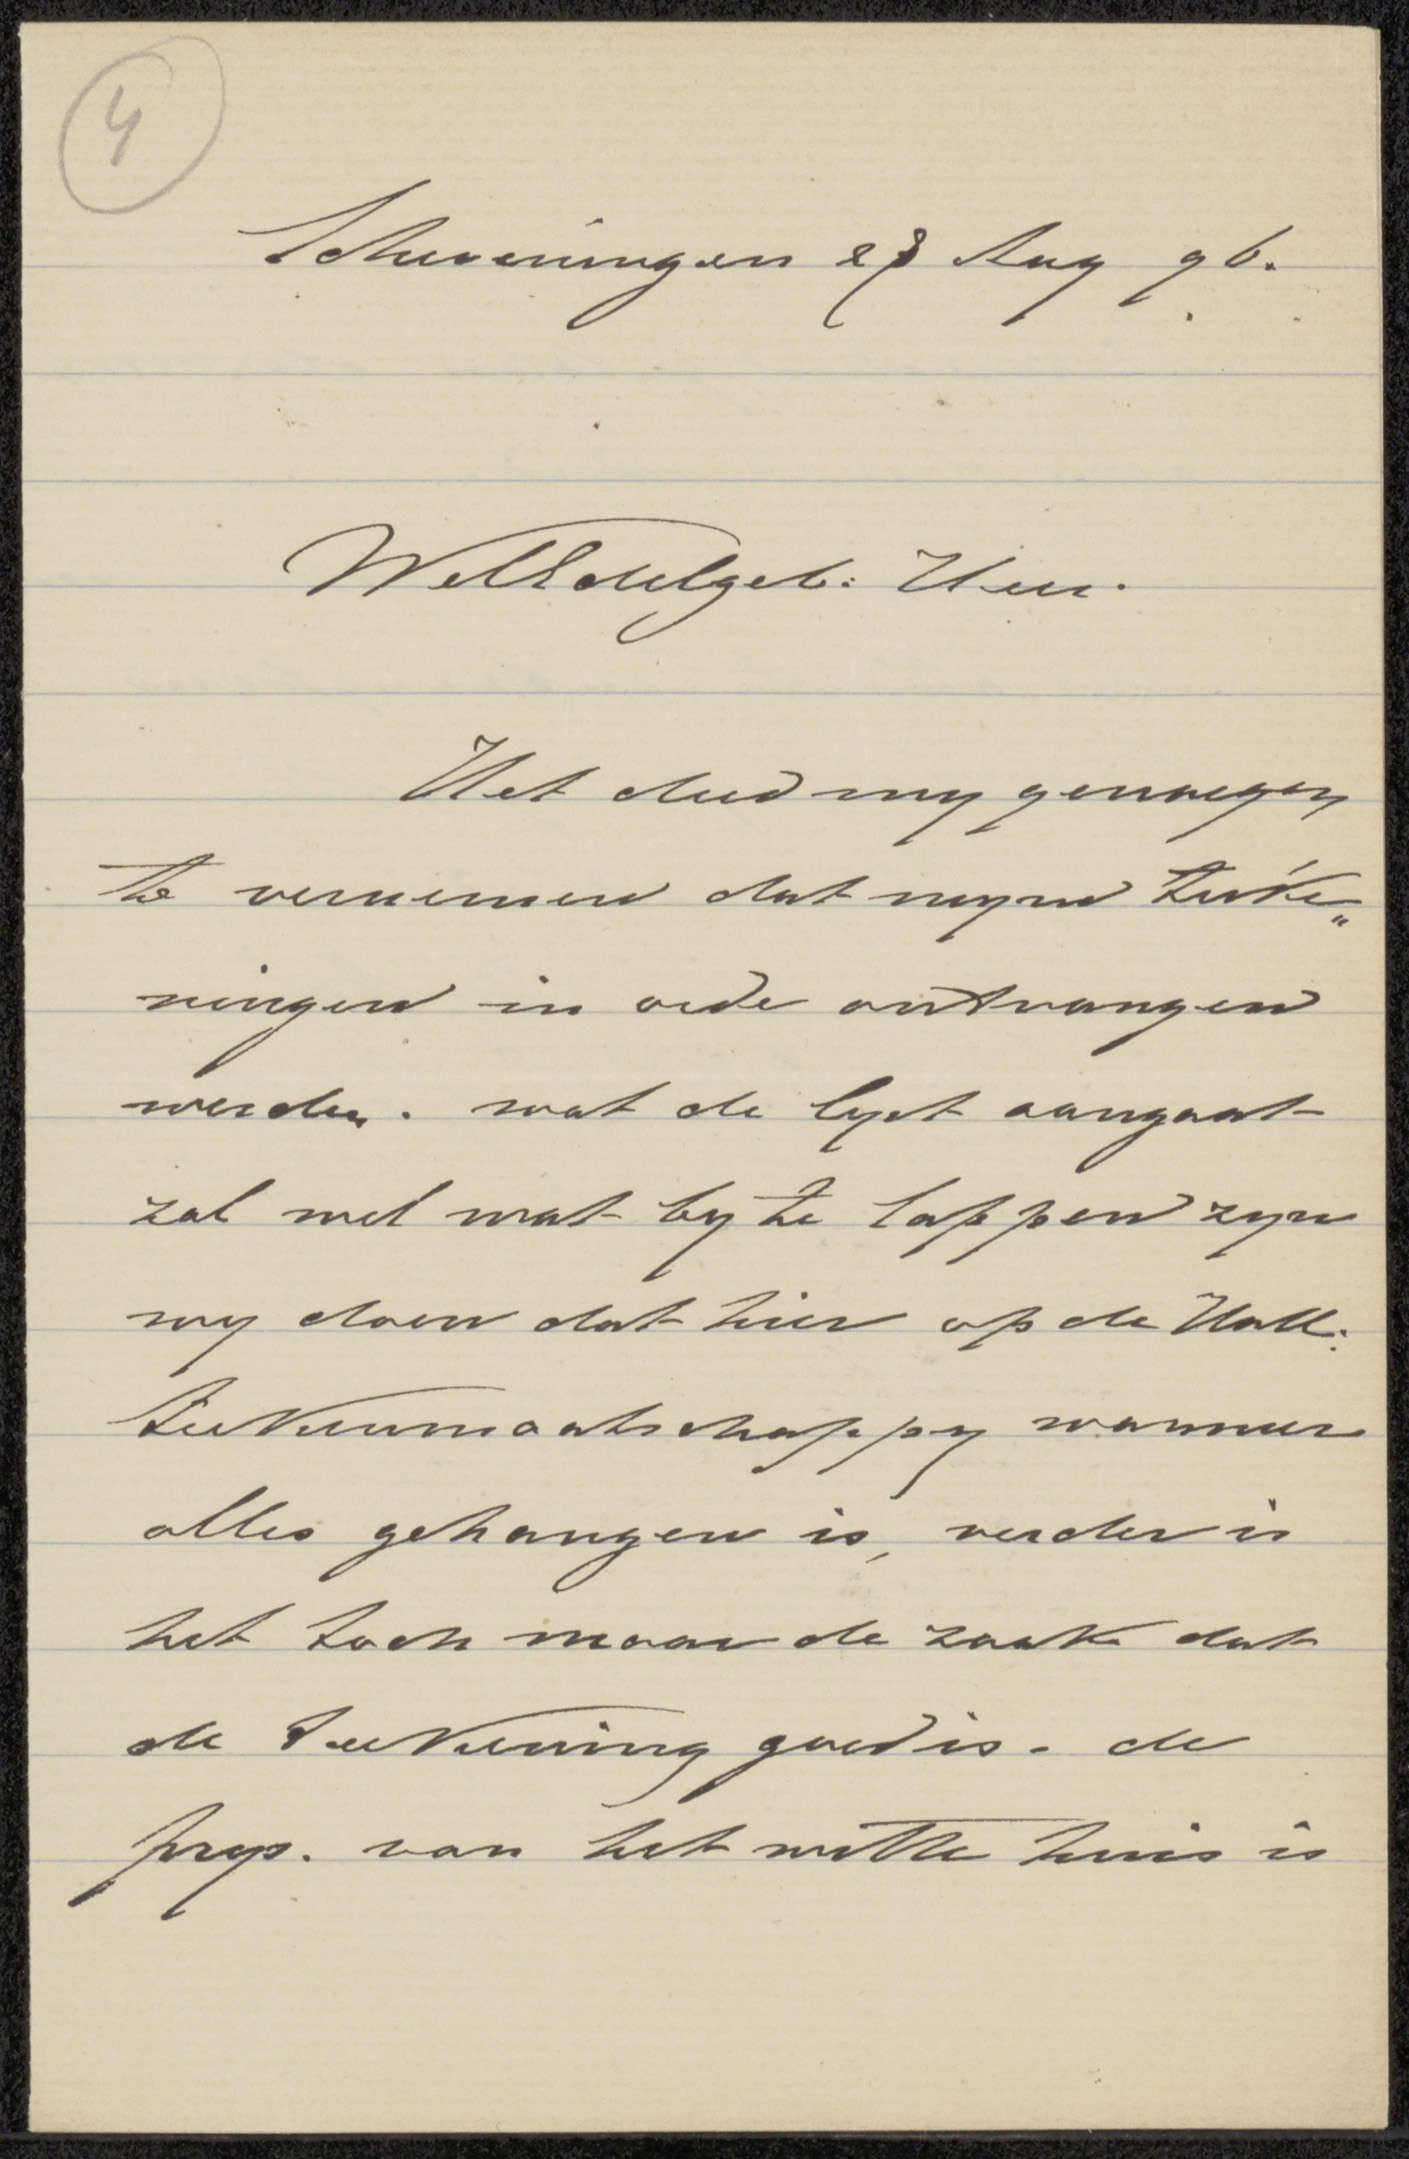 4
Scheveningen 28 Aug 96.
WelEdelgeb: Heer.
Het deed my genoegen
te vernemen dat myne teeke„
ningen in orde ontvangen
werden. wat de lyst aangaat
zal wel wat by te lappen zyn
wy doen dat hier op de Holl:
teekenmaatschappy wanneer
alles gehangen is, verder is
het toch maar de zaak dat
de teekening goed is. de
prys. van het witte huis is